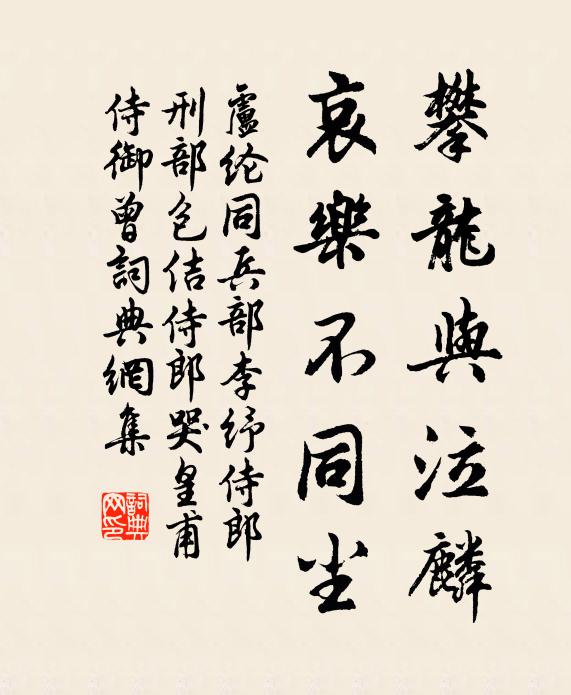 攀龍與泣麟
哀樂不同塵
盧纶同兵部李纾侍郎
刑部包佶侍郎哭皇甫
侍御曾詞典網集
詞典网印